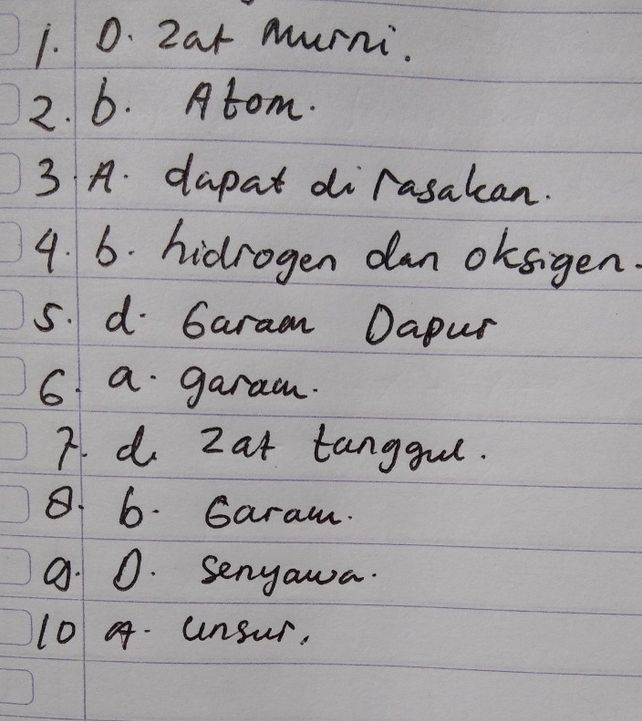 1. D. Zat Murni.
2. b. Atom.
3. A. dapat di rasakan.
4. b. hidrogen dan oksigen.
5. d. Garam Dapur
6. a. garam.
7. d. Zat tanggul.
8. b. Garam.
9. D. senyawa.
10 A. unsur.